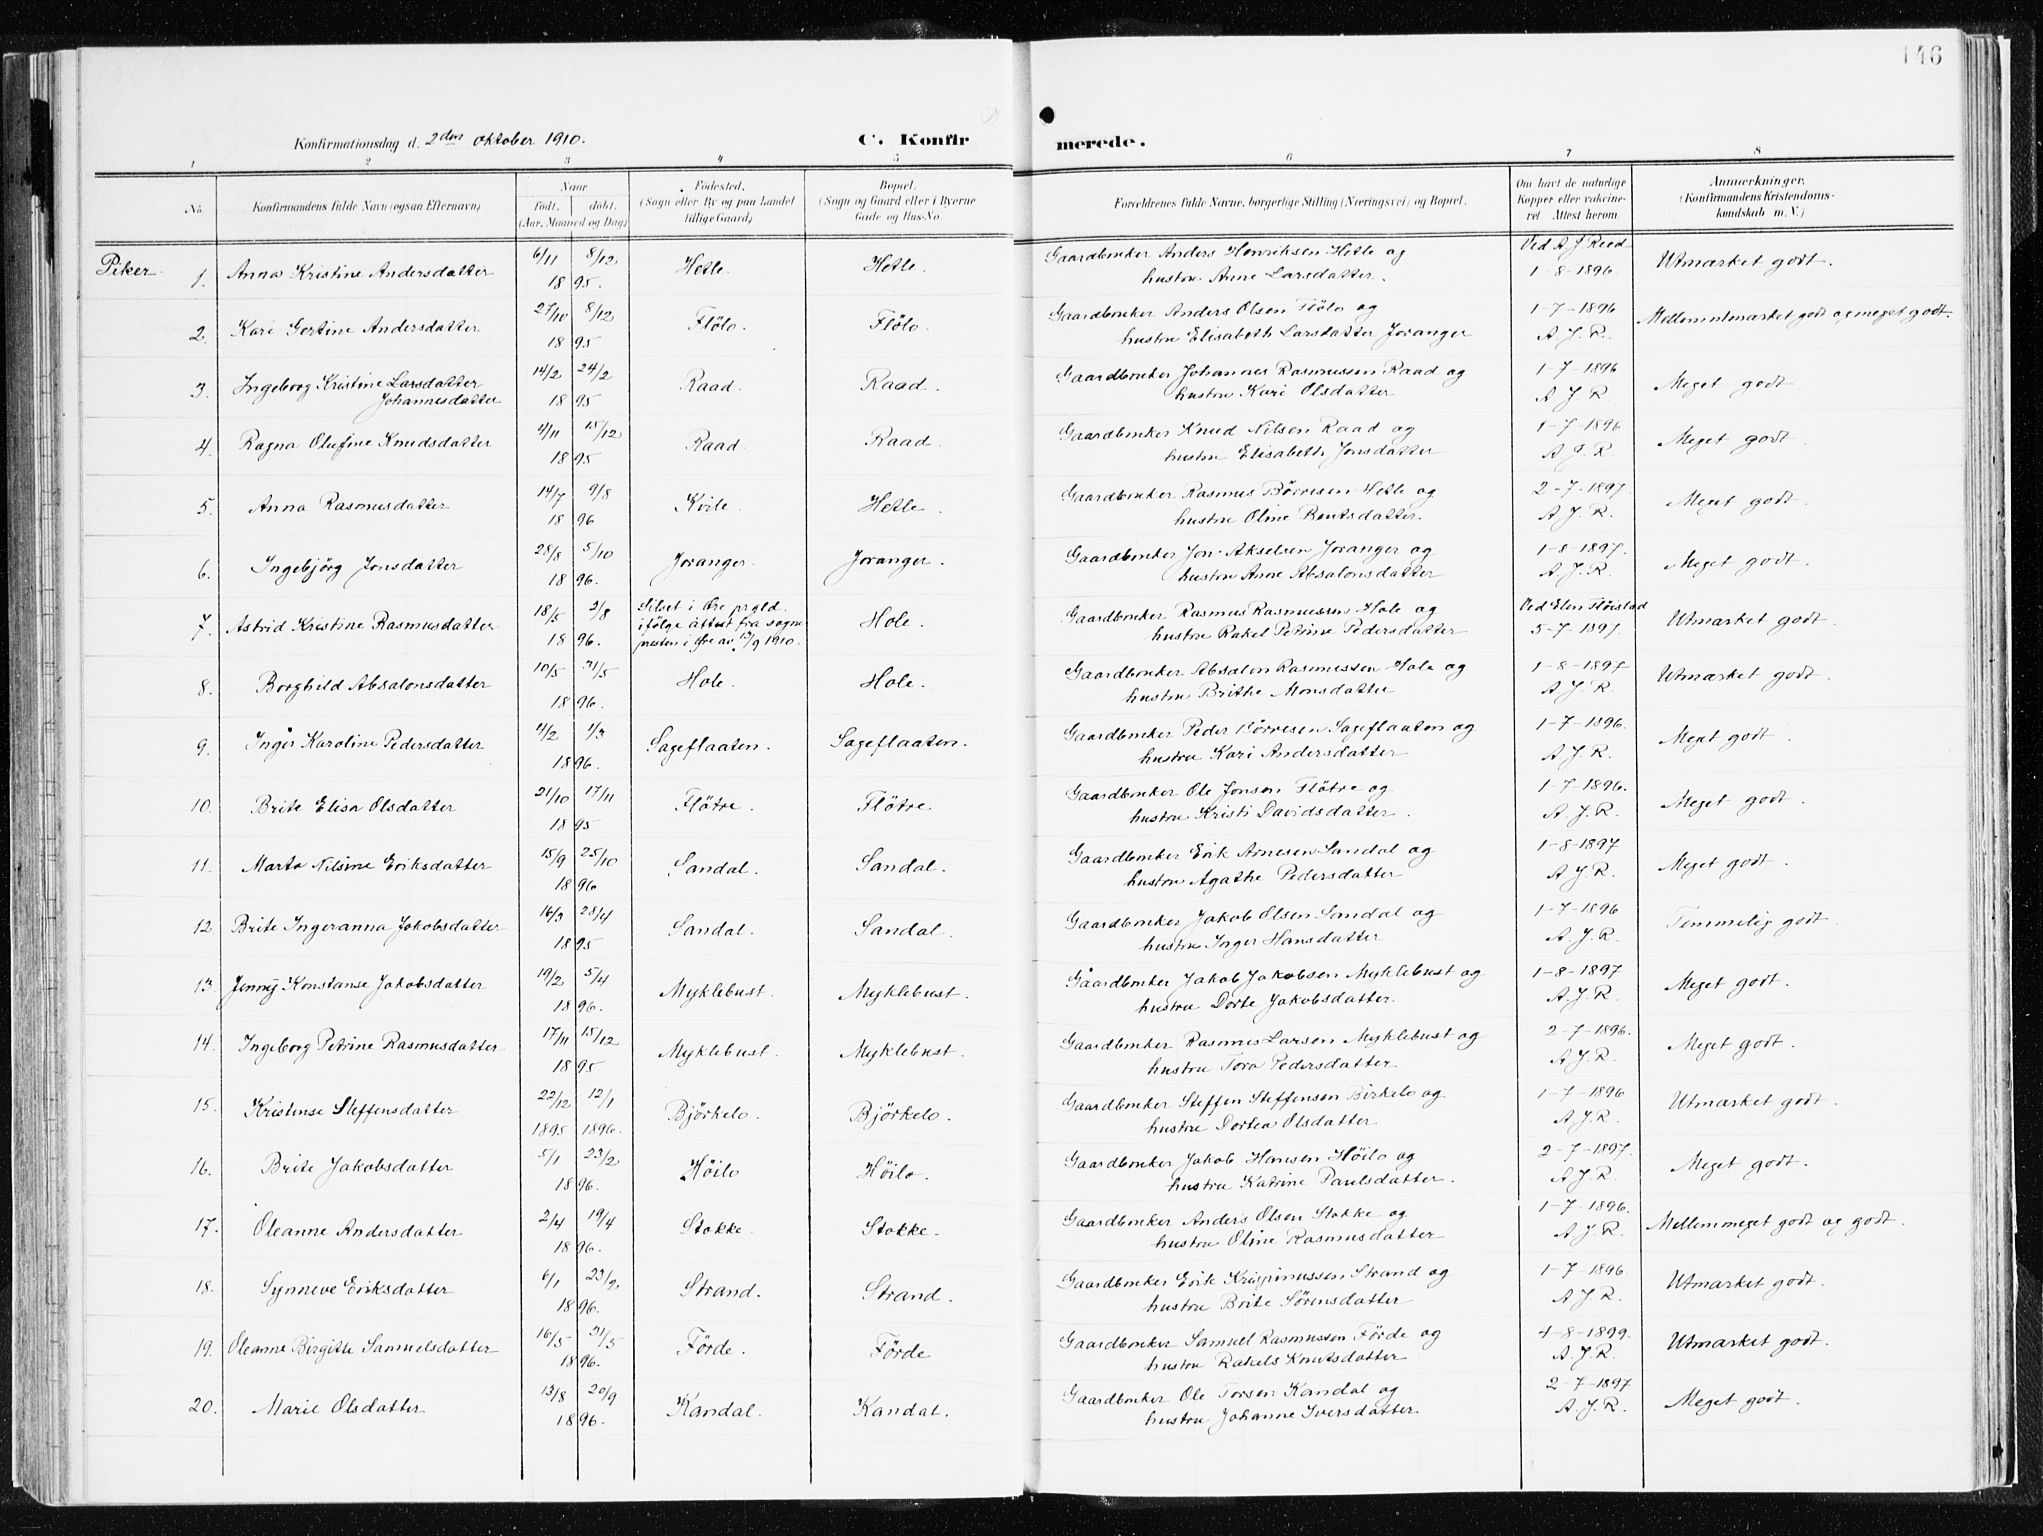 146
Konfirmationsdag d. 2den oktober 1910.
C. Konfirmerede.
1 2 3 4 5 6 7 8
No.
Konfirmandens fulde Navn (ogsaa Efternavn)
Naar
Født. døbt.
(Aar, Maaned og Dag)
Fødested.
(Sogn eller By og paa Landet
tillige Gaard)
Bopæl.
(Sogn og Gaard eller i Byerne
Gade og Hus-No.
Forældrenes fulde Navne, borgerlige Stilling (Næringsvei) og Bopæl.
Om havt de naturlige
Kopper eller vakcine-
ret Attest herom.
Anmærkninger.
(Konfirmandens Kristendoms-
kundskab m. V.)
Piker.
1. Anna Kristine Andersdatter 6/11 8/12 Hetle. Hetle. Gaardbruker Anders Henriksen Hetle og Ved A J Reed Utmærket godt.
18 95. hustru Anne Larsdatter. 1-8-1896
2. Kari Gertine Andersdatter 27/10 8/12 Flølo. Flølo. Gaardbruker Anders Olsen Flølo og 1-7-1896 Mellem utmærket godt og meget godt.
18 95 hustru Elisabeth Larsdatter Joranger A. J. R.
3. Ingeborg Kristine Larsdatter 14/2 24/2 Raad. Raad. Gaardbruker Johannes Rasmussen Raad og 1-7-1896 Meget godt
Johannesdatter 18 95 hustru Kari Olsdatter A J R.
4. Ragna Olufine Knudsdatter 4/11 15/12 Raad. Raad. Gaardbruker Knud Nilsen Raad og 1-7-1896 Meget godt.
18 95 hustru Elisabeth Jonsdatter A. J. R.
5. Anna Rasmusdatter 14/7 9/8 Kvile. Hetle. Gaardbruker Rasmus Børresen Hetle og 2-7-1897. Meget godt.
18 96 hustru Oline Bentsdatter. A. J. R.
6. Ingebjørg Jonsdatter 28/8 5/10 Joranger. Joranger. Gaardbruker Jon Akselsen Joranger og 1-8-1897. Meget godt.
18 96. hustru Anne Absalonsdatter A. J. R.
7. Astrid Kristine Rasmusdatter 18/5 2/8 Silset i Øre prgld. Hole. Gaardbruker Rasmus Rasmussen Hole og Ved Elen Fløistad Utmærket godt.
18 96. ifølge attest fra sogne hustru Rakel Petrine Pedersdatter 5-7-1897.
presten i Øre av 12/9 1910.
8. Borghild Absalonsdatter 10/5 31/5 Hole. Hole. Gaardbruker Absalon Rasmussen Hole og 1-8-1897 Utmærket godt.
18 96. hustru Brithe Monsdatter A. J. R.
9. Inger Karoline Pedersdatter 4/2 1/3 Sageflaaten. Sageflaaten. Gaardbruker Peder Børresen Sageflaaten og 1-7-1896. Meget godt.
18 96. hustru Kari Andersdatter A. J. R.
10. Brite Elisa Olsdatter 21/10 17/11 Fløtre. Fløtre. Gaardbruker Ole Jonsen Fløtre og 1-7-1896. Meget godt.
18 95 hustru Kristi Davidsdatter. A. J. R.
11. Marta Nilsine Eriksdatter 15/9 25/10 Sandal. Sandal. Gaardbruker Erik Arnesen Sandal og 1-8-1897 Meget godt.
18 96 hustru Agathe Pedersdatter A. J. R.
12 Brite Ingeranna Jakobsdatter 16/3 28/4 Sandal. Sandal. Gaardbruker Jakob Olsen Sandal og 1-7-1896 Temmelig godt.
18 95 hustru Inger Hansdatter A. J. R.
13. Jenny Konstanse Jakobsdatter 19/2 5/4 Myklebust. Myklebust. Gaardbruker Jakob Jakobsen Myklebust og 1-8-1897 Meget godt.
18 96. hustru Dorte Jakobsdatter. A. J. R.
14. Ingeborg Petrine Rasmusdatter 17/11 15/12 Myklebust. Myklebust. Gaardbruker Rasmus Larsen Myklebust og 2-7-1896. Meget godt.
18 95 hustru Tora Pedersdatter A J R.
15. Kristense Steffensdatter 22/12 12/1 Bjørkelo. Bjørkelo. Gaardbruker Steffen Steffensen Birkelo og 1-7-1896 Utmærket godt.
1895 1896. hustru Dortea Olsdatter A. J. R.
16. Brite Jakobsdatter 5/1 23/2 Høilo Høilo. Gaardbruker Jakob Hansen Høilo og 2-7-1897. Meget godt.
18 96. hustru Katrine Paulsdatter. A. J. R.
17. Oleanne Andersdatter 2/4 19/4 Stokke Stokke. Gaardbruker Anders Olsen Stokke og 1-7-1896. Mellem meget godt og godt.
18 96. hustru Oline Rasmusdatter A. J. R.
18. Synneve Eriksdatter 6/1 23/2 Strand. Strand. Gaardbruker Erik Krispinussen Strand og 1-7-1896. Utmærket godt.
18 96. hustru Brite Sørensdatter A. J. R.
19. Oleanne Birgitte Samuelsdatter 16/5 31/5 Førde. Førde Gaardbruker Samuel Rasmussen Førde og 4-8-1899. Utmærket godt.
18 96. hustru Rakels Knutsdatter A. J. R.
20. Marie Olsdatter 13/8 20/9 Kandal. Kandal. Gaardbruker Ole Torsen Kandal og 2-7-1897 Meget godt.
18 96. hustru Johanne Iversdatter. A. J. R.